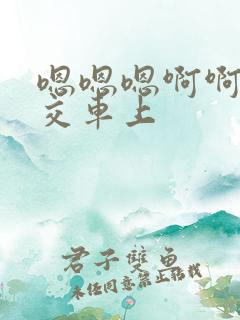 嗯嗯嗯啊啊
交车上
君子双鱼
未任同意禁止转载